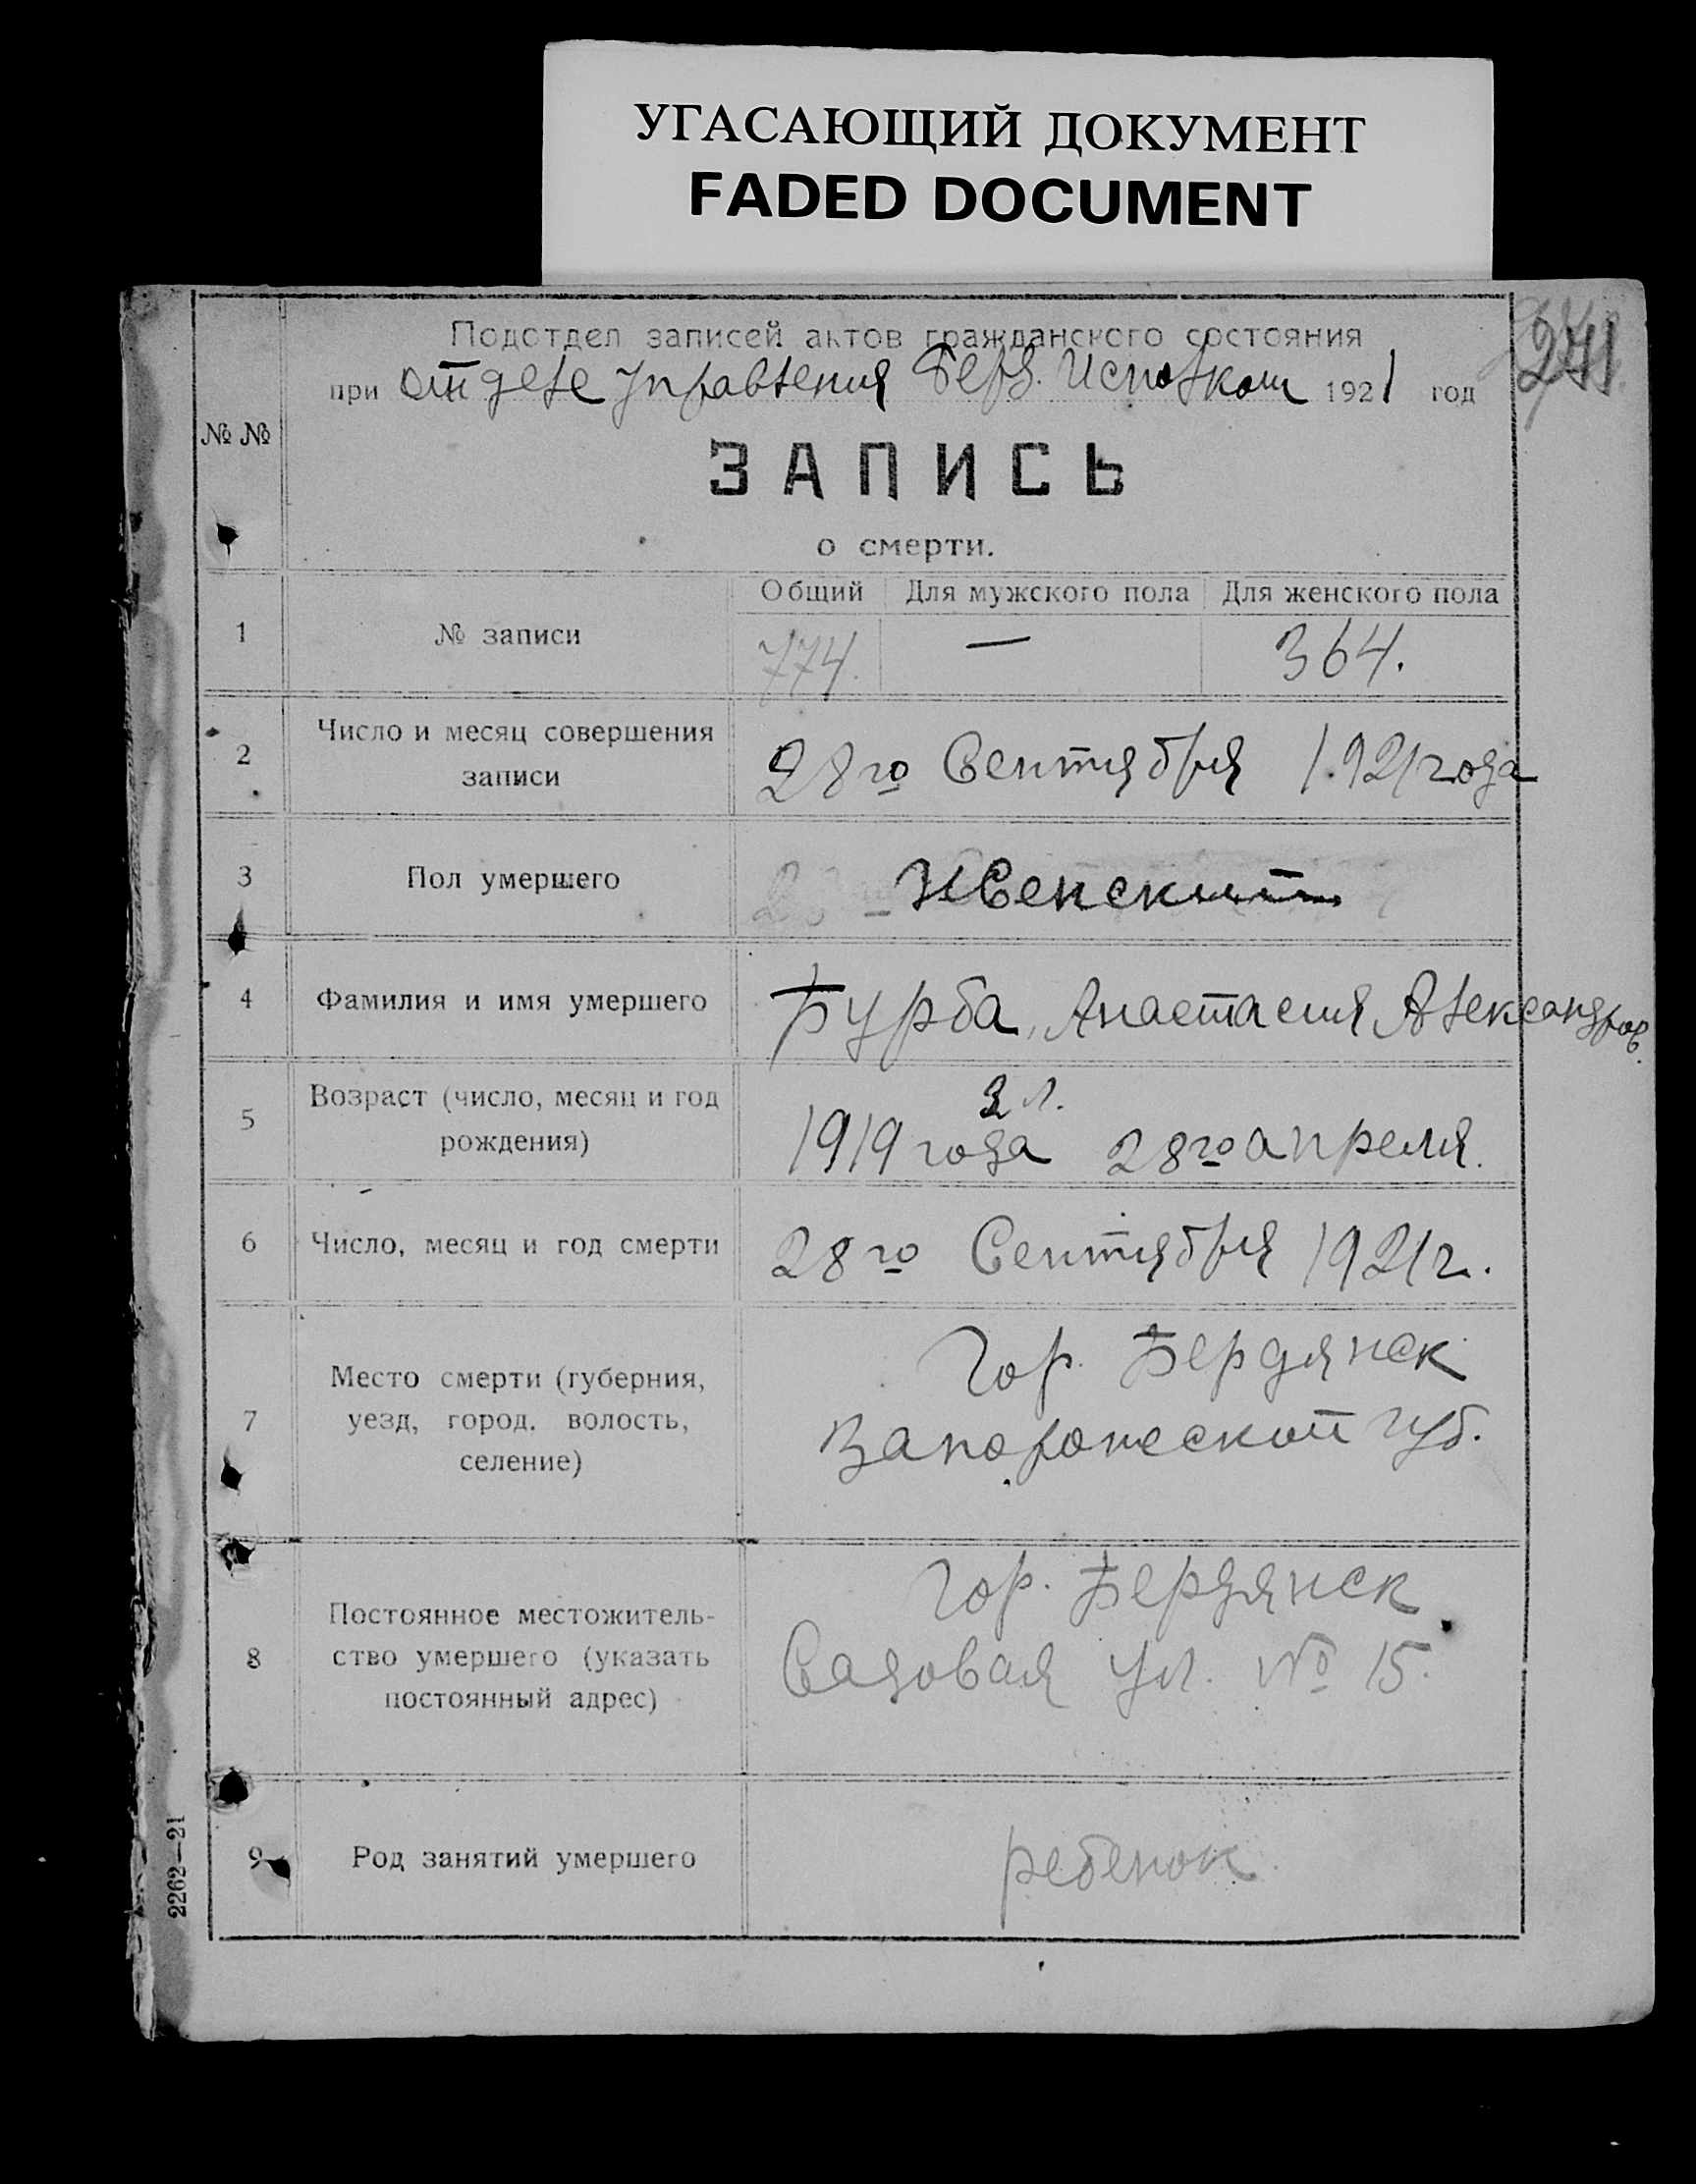 УГАСАЮЩИЙ ДОКУМЕНТ
FADED DOCUMENT
Подотдел записей актов гражданского состояния
при отделе управления Берд. Исполком 1921 год
271
№ №
ЗАПИСЬ
о смерти.
Общий Для мужского пола Для женского пола
1 № записи 774. — 364.
2 Число и месяц совершения
записи
28го Сентября 1921 года
3 Пол умершего Женский
4 Фамилия и имя умершего Бурба, Анастасия Александров.
5 Возраст (число, месяц и год
рождения)
2 л.
1919 года 28го апреля.
6 Число, месяц и год смерти 28го Сентября 1921 г.
7 Место смерти (губерния,
уезд, город. волость,
селение)
Гор. Бердянск
Запорожской губ.
8 Постоянное местожитель-
ство умершего (указать
постоянный адрес)
Гор. Бердянск
Садовая ул. № 15.
9 Род занятий умершего ребенок
2262—21